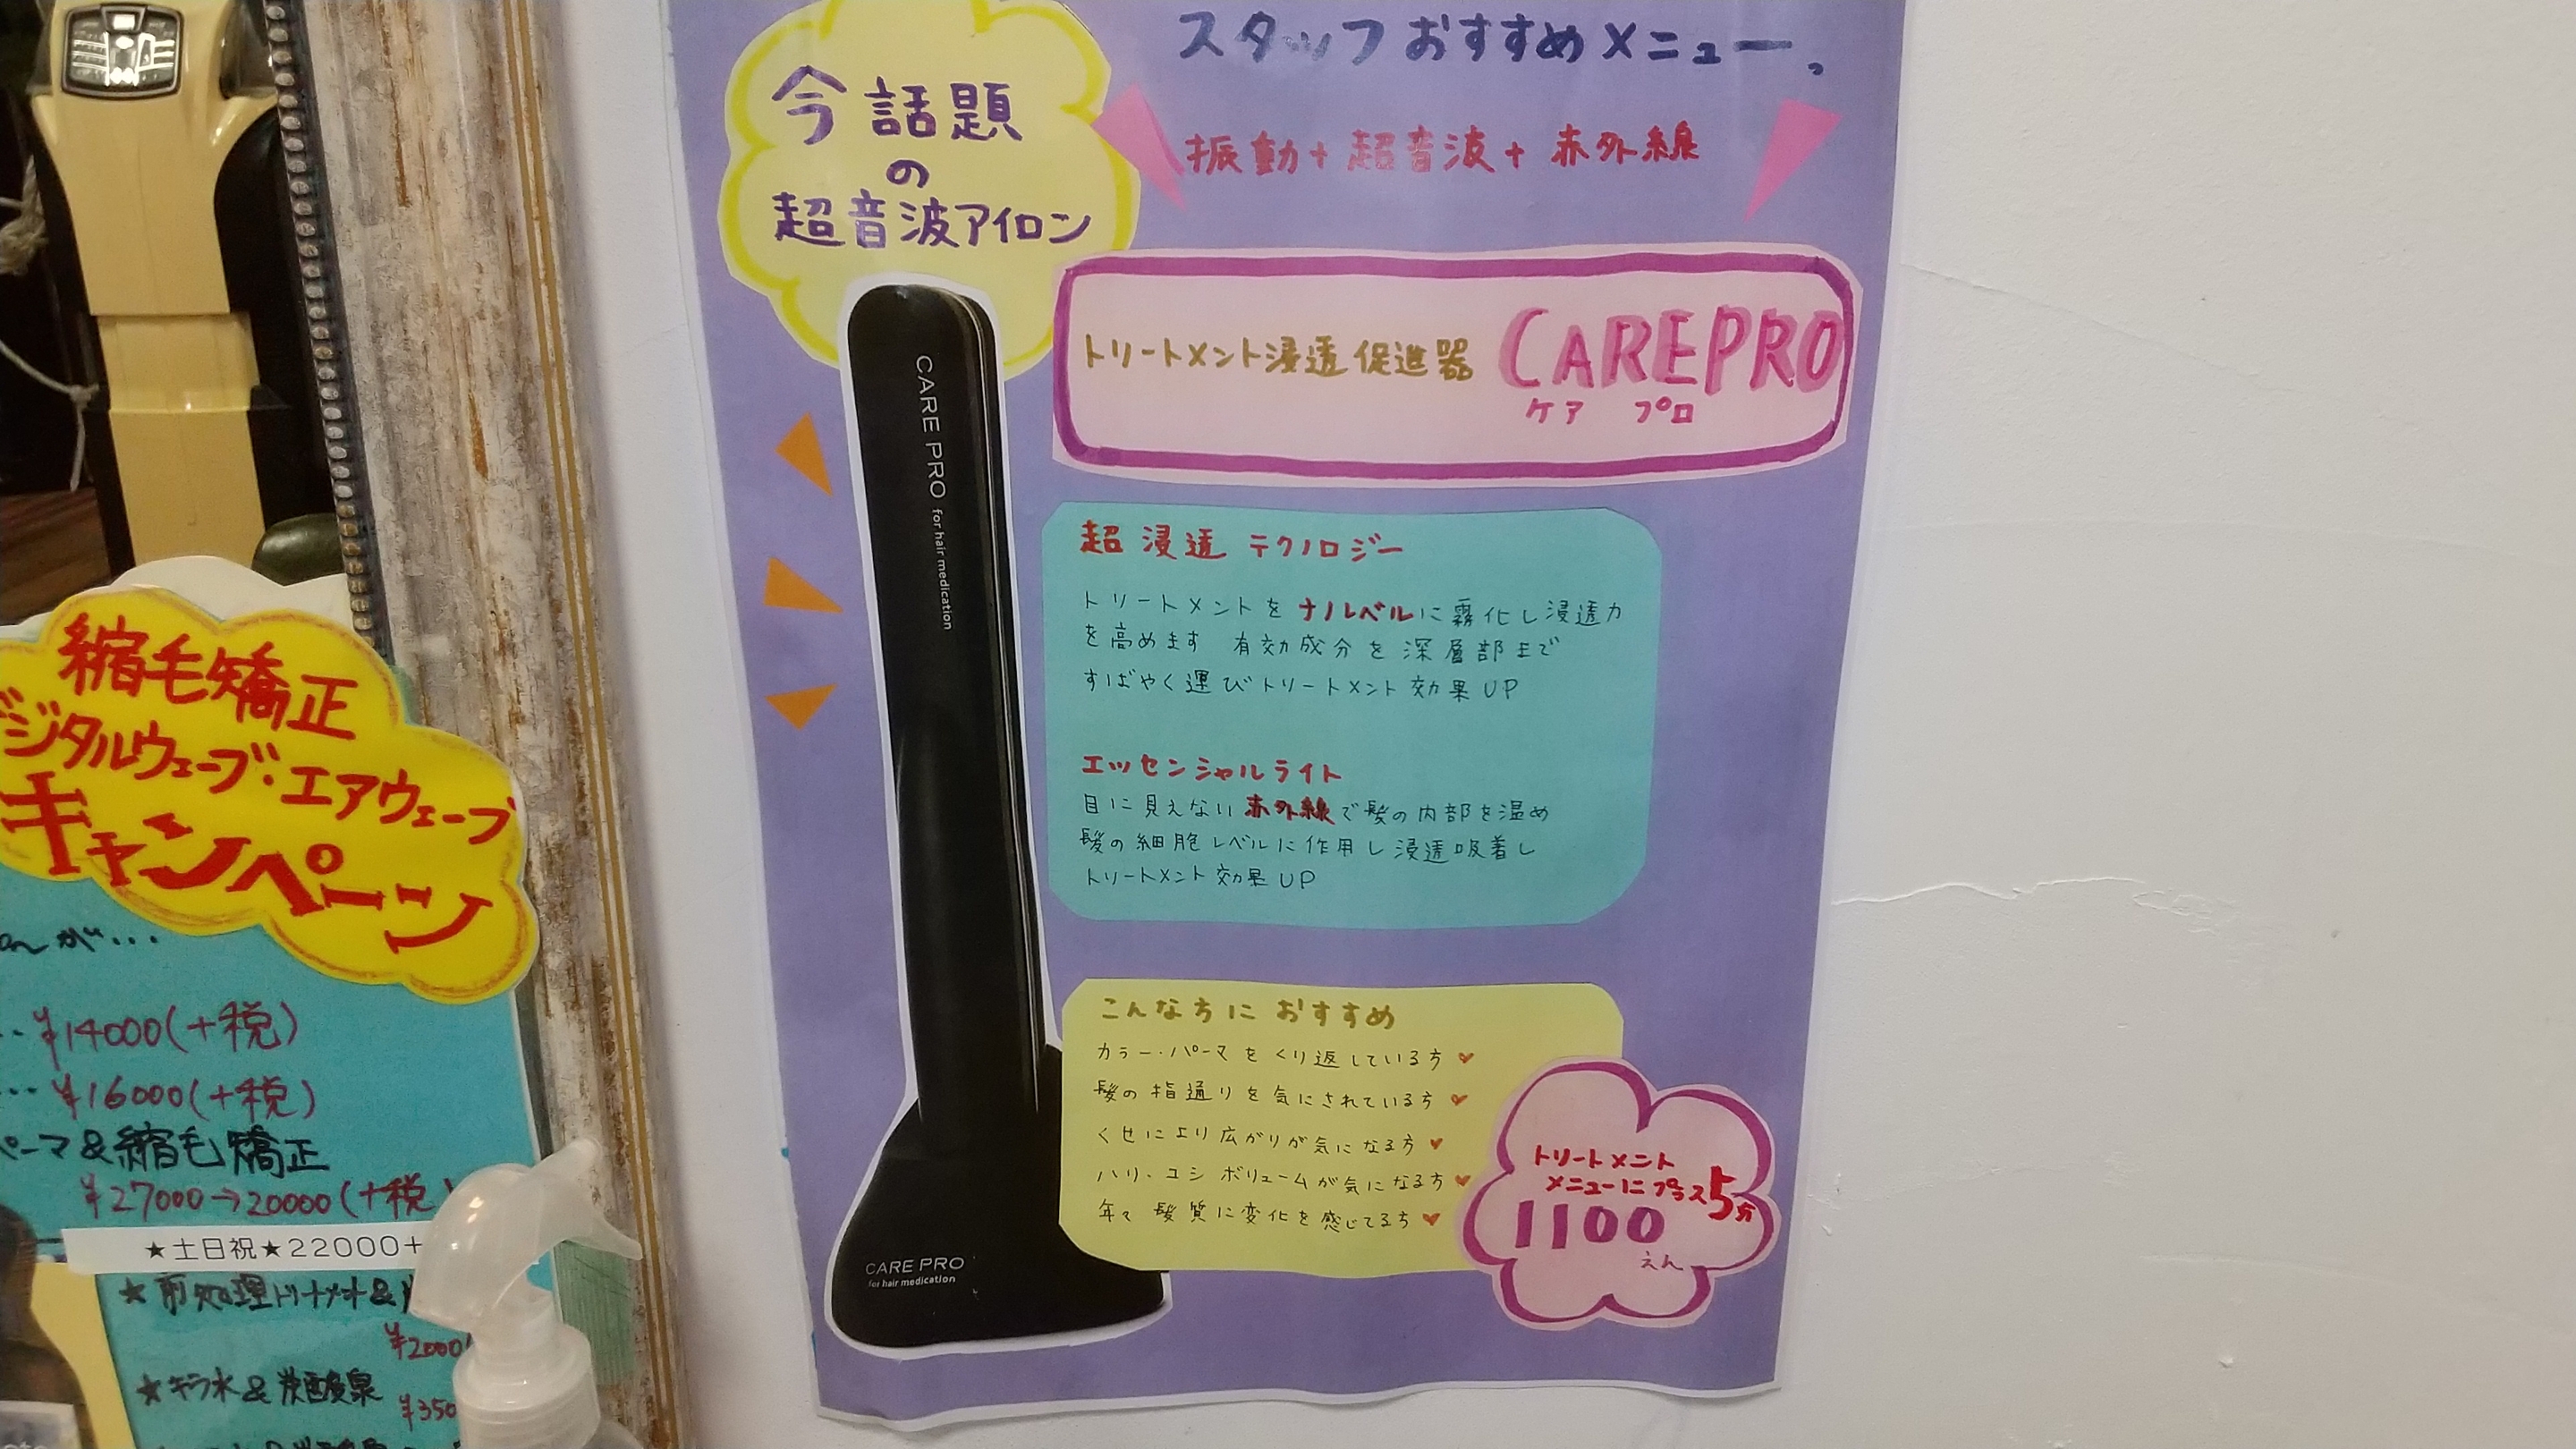 スタッフおすすめメニュー。
今話題
の
超音波アイロン
振動+超音波+赤外線
トリートメント浸透促進器 CAREPRO
ケア プロ
CARE PRO for hair medication
超浸透テクノロジー
トリートメントをナノレベルに霧化し浸透力
を高めます 有効成分を深層部まで
すばやく運びトリートメント効果UP
エッセンシャルライト
目に見えない赤外線で髪の内部を温め
髪の細胞レベルに作用し浸透吸着し
トリートメント効果UP
こんな方におすすめ
カラー・パーマをくり返している方♥
髪の指通りを気にされている方♥
くせにより広がりが気になる方♥
ハリ、コシ ボリュームが気になる方♥
年々髪質に変化を感じてる方♥
トリートメント
メニューにプラス5分
1100
えん
CARE PRO
for hair medication
縮毛矯正
デジタルウェーブ・エアウェーブ
キャンペーン
が...
¥14000(+税)
¥16000(+税)
パーマ&縮毛矯正
¥27000→20000(+税
★土日祝★22000+
★前処理トリートメント&
¥2000
★キラ水&炭酸泉
¥350